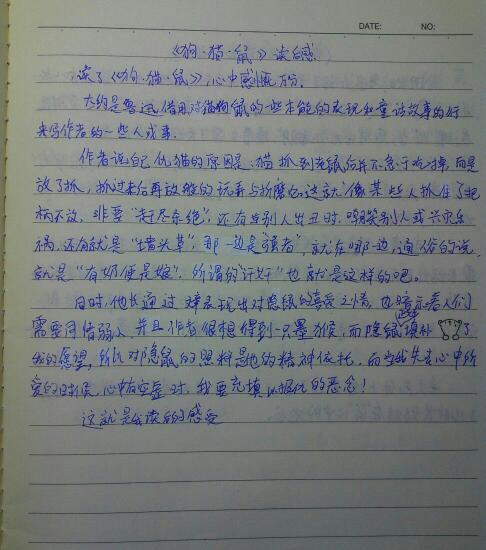 DATE: NO:
《狗·猫·鼠》读后感
读了《狗·猫·鼠》,心中感慨万分。
大约是鲁迅借用对猫狗鼠的一些本能的表现和童话故事的行
来写作者的一些人或事。
作者说自己仇猫的原因是:猫抓到老鼠后并不急于吃掉,而是
放了抓,抓过来后再放般的玩弄与折磨,这就像某些人抓住了把
柄不放,非要“赶尽杀绝”,还有当别人出丑时,嘲笑别人或兴灾乐
祸,还有就是“墙头草”,那一边是“强者”,就在哪一边,通俗的说,
就是“有奶便是娘”,所谓的“汗奸”也就是这样的吧。
同时,他长通过 表现出对隐鼠的喜爱之情,也暗示着人们
需要同情弱人,并且作者很想得到一只墨猴,而隐鼠填补 了
的愿望,所以对隐鼠的照料是他的精神依托,而当我失去心中所
爱的时候,心中有空虚时,我要充填以报仇的恶念!
这就是我读后的感受